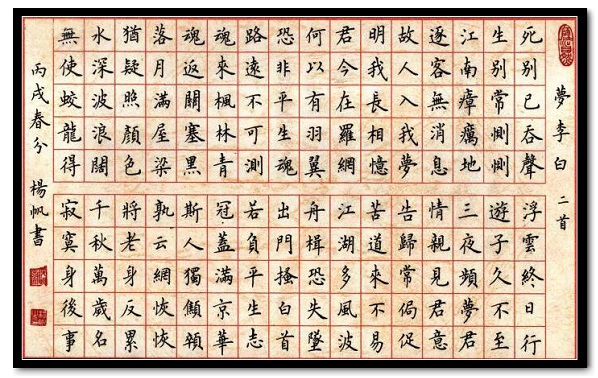 夢李白 二首
死别已吞聲
生别常惻惻
江南瘴癘地
逐客無消息
故人入我夢
明我長相憶
君今在羅網
何以有羽翼
恐非平生魂
路遠不可測
魂來楓林青
魂返關塞黑
落月滿屋梁
猶疑照顏色
水深波浪闊
無使蛟龍得
浮雲終日行
遊子久不至
三夜頻夢君
情親見君意
告歸常侷促
苦道來不易
江湖多風波
舟楫恐失墜
出門搔白首
若負平生志
冠蓋滿京華
斯人獨顦顇
孰云網恢恢
將老身反累
千秋萬歲名
寂寞身後事
丙戌春分 楊帆書